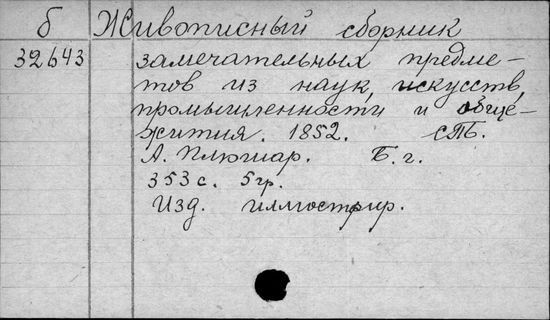 б Живописный сборник
32643 замечательных предме-
тов из наук, искусств,
промышленности и обще-
жития. 1852. СПб.
А. Плюшар. Б. г.
353 с. 5 гр.
Изд. иллюстрир.